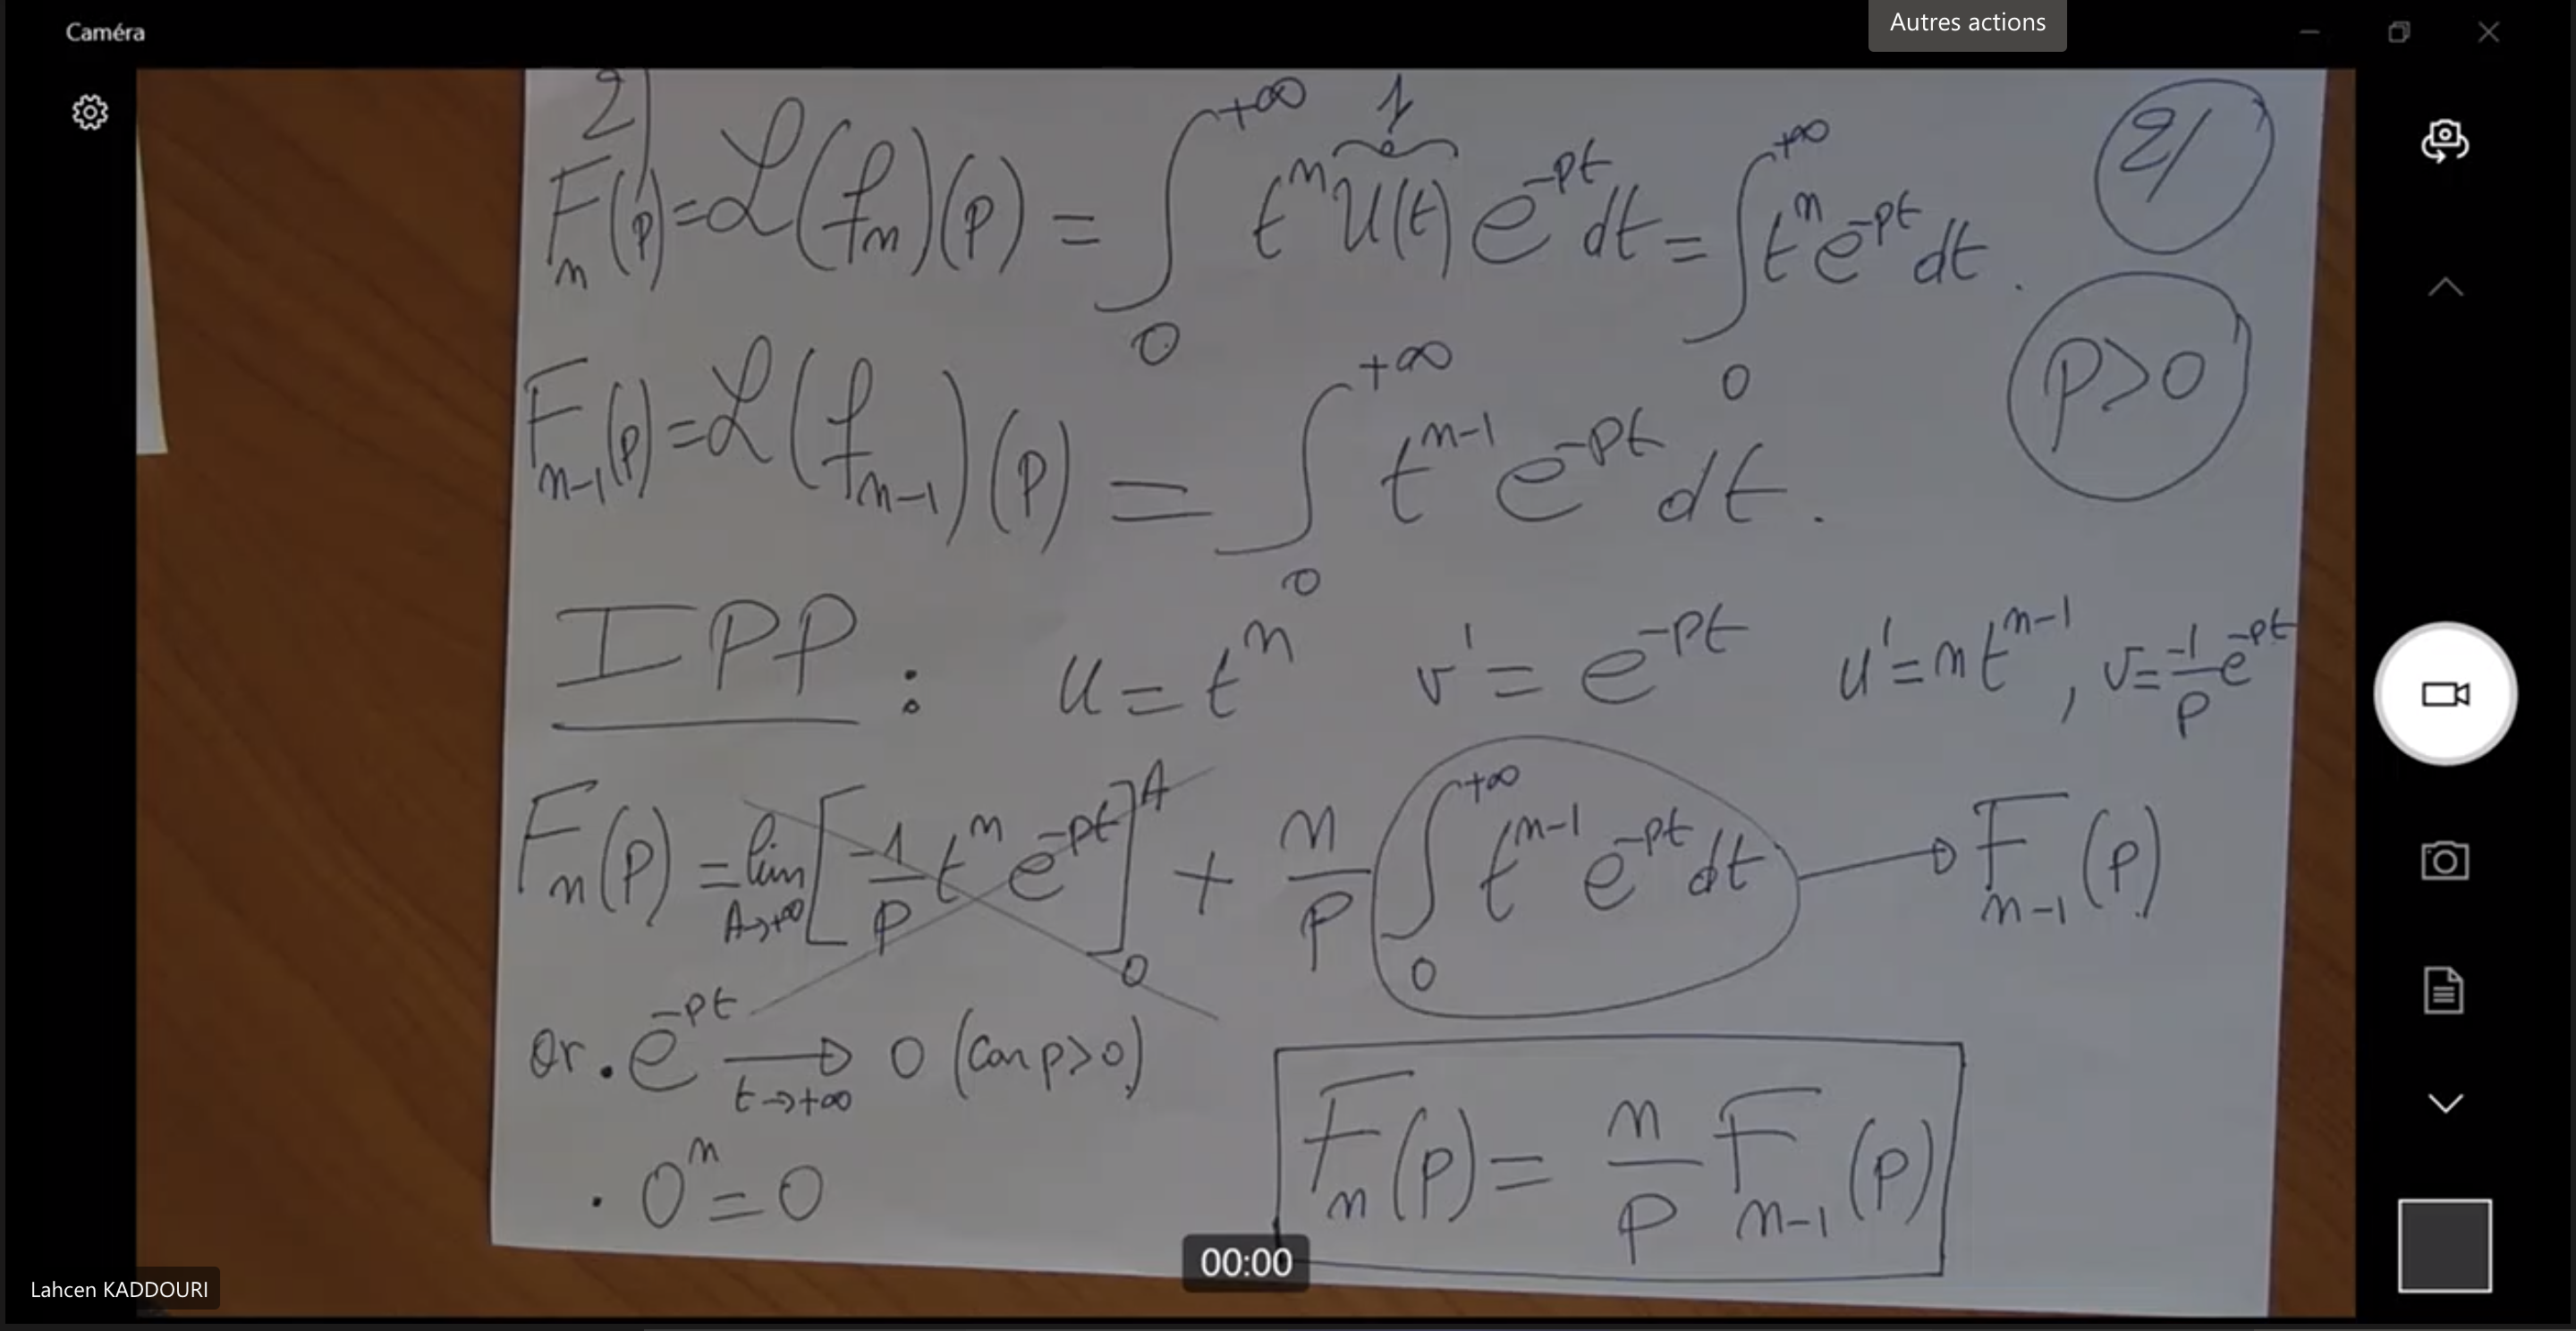 Caméra
Autres actions
2)
Fₙ(p) = ℒ(fₙ)(p) = ∫₀^{+∞} tⁿ U(t) e^{-pt} dt = ∫₀^{+∞} tⁿ e^{-pt} dt .
1
2/
Fₙ₋₁(p) = ℒ(fₙ₋₁)(p) = ∫₀^{+∞} t^{n-1} e^{-pt} dt .
p>0
IPP : u = tⁿ v' = e^{-pt} u' = n t^{n-1} , v = -1/p e^{-pt}
Fₙ(p) = lim A→+∞ [-1/p tⁿ e^{-pt}]₀^A + n/p ∫₀^{+∞} t^{n-1} e^{-pt} dt → Fₙ₋₁(p)
or . e^{-pt} → t→+∞ 0 (car p>0)
. 0ⁿ = 0
Fₙ(p) = n/p Fₙ₋₁(p)
00:00
Lahcen KADDOURI